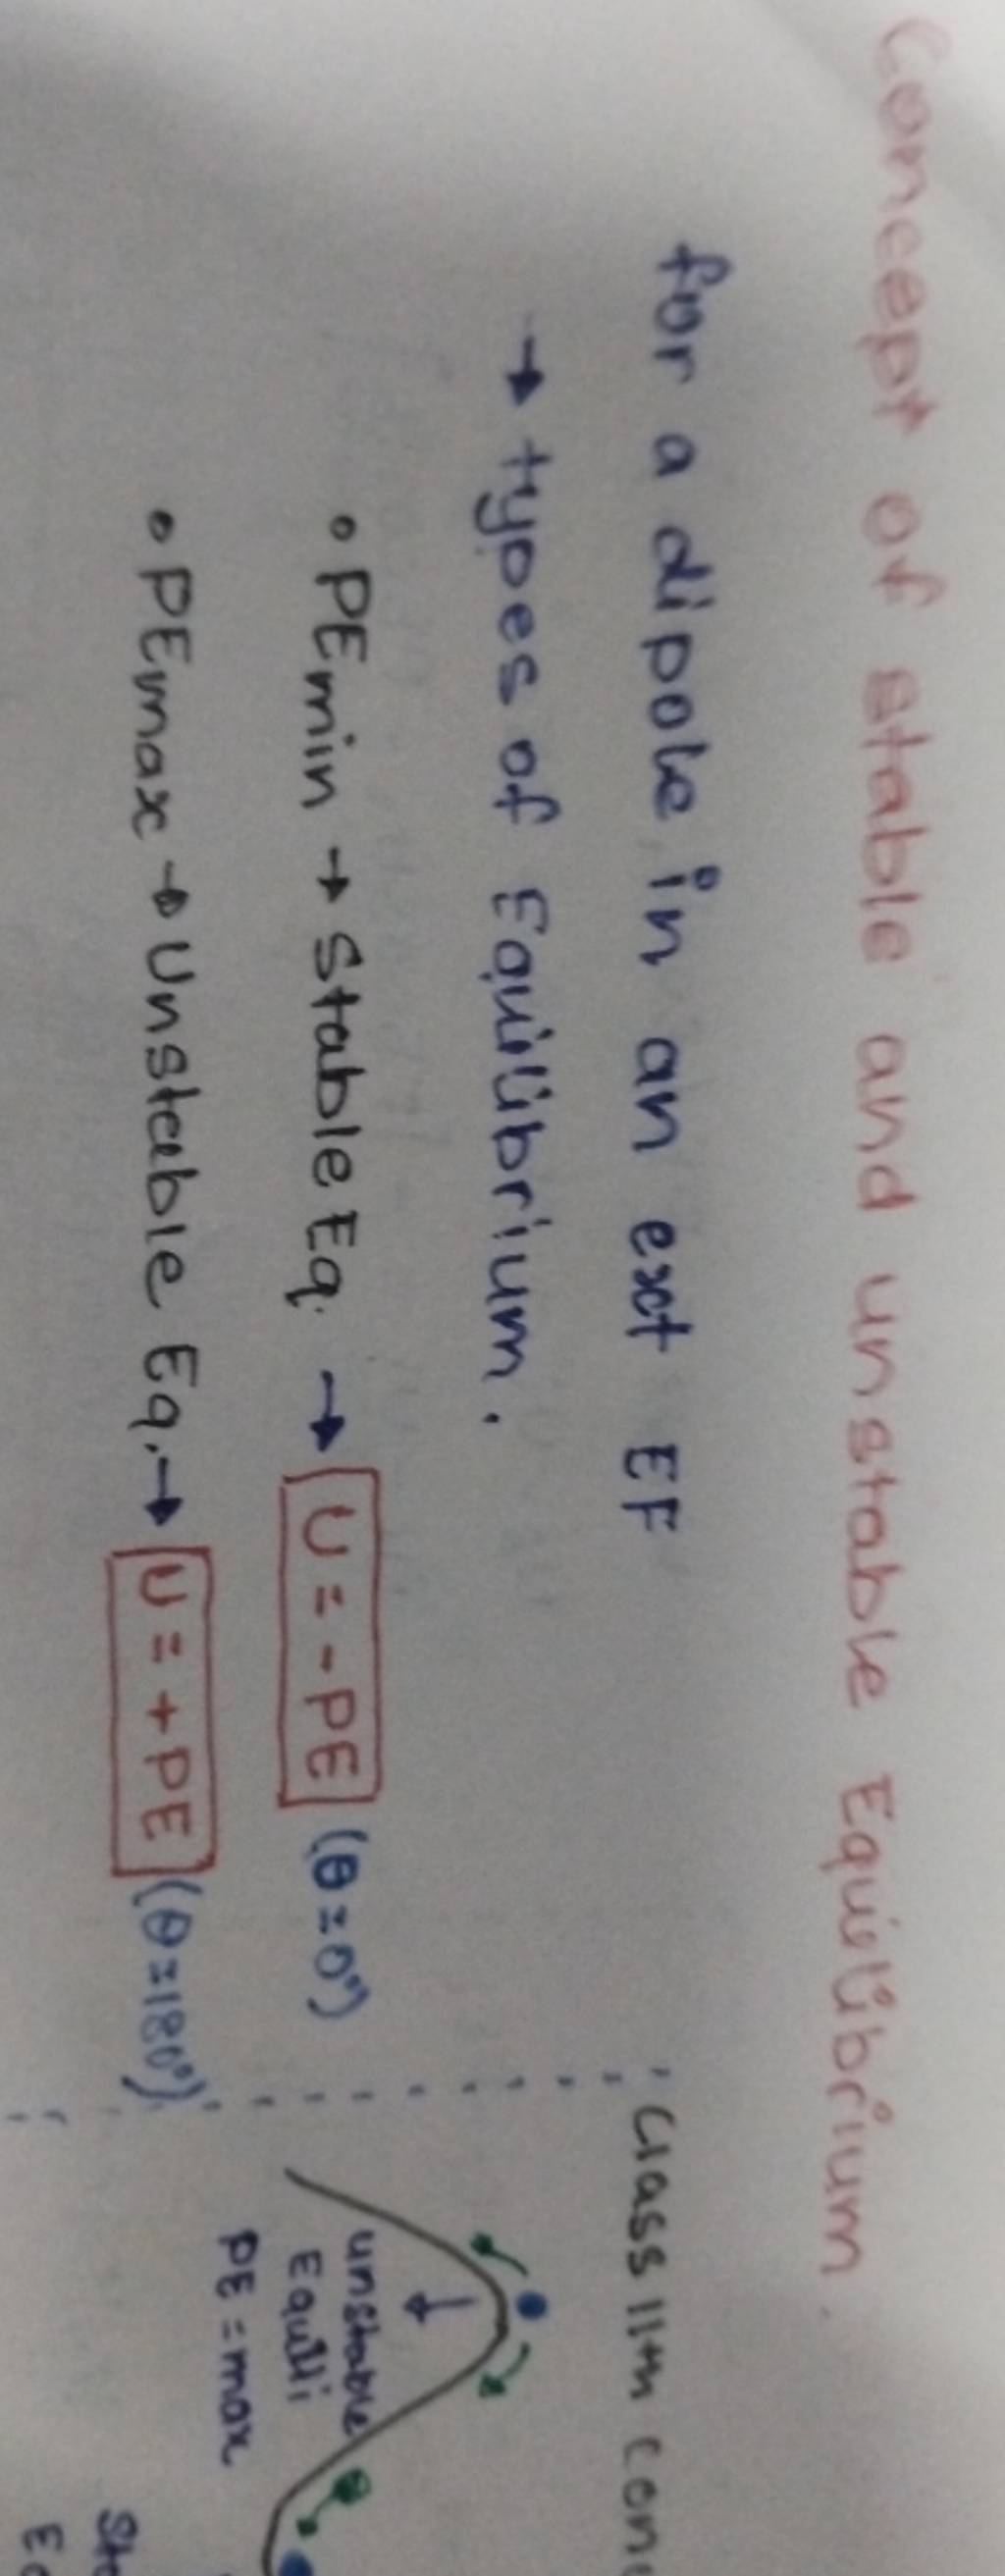 Concept of stable and unstable Equilibrium.
for a dipole in an ext EF
→ types of Equilibrium.
• PEmin → Stable Eq. → U = -PE (θ=0°)
• PEmax → Unstable Eq. → U = +PE (θ=180°)
Class 11th
unstable
Equili
PE = max